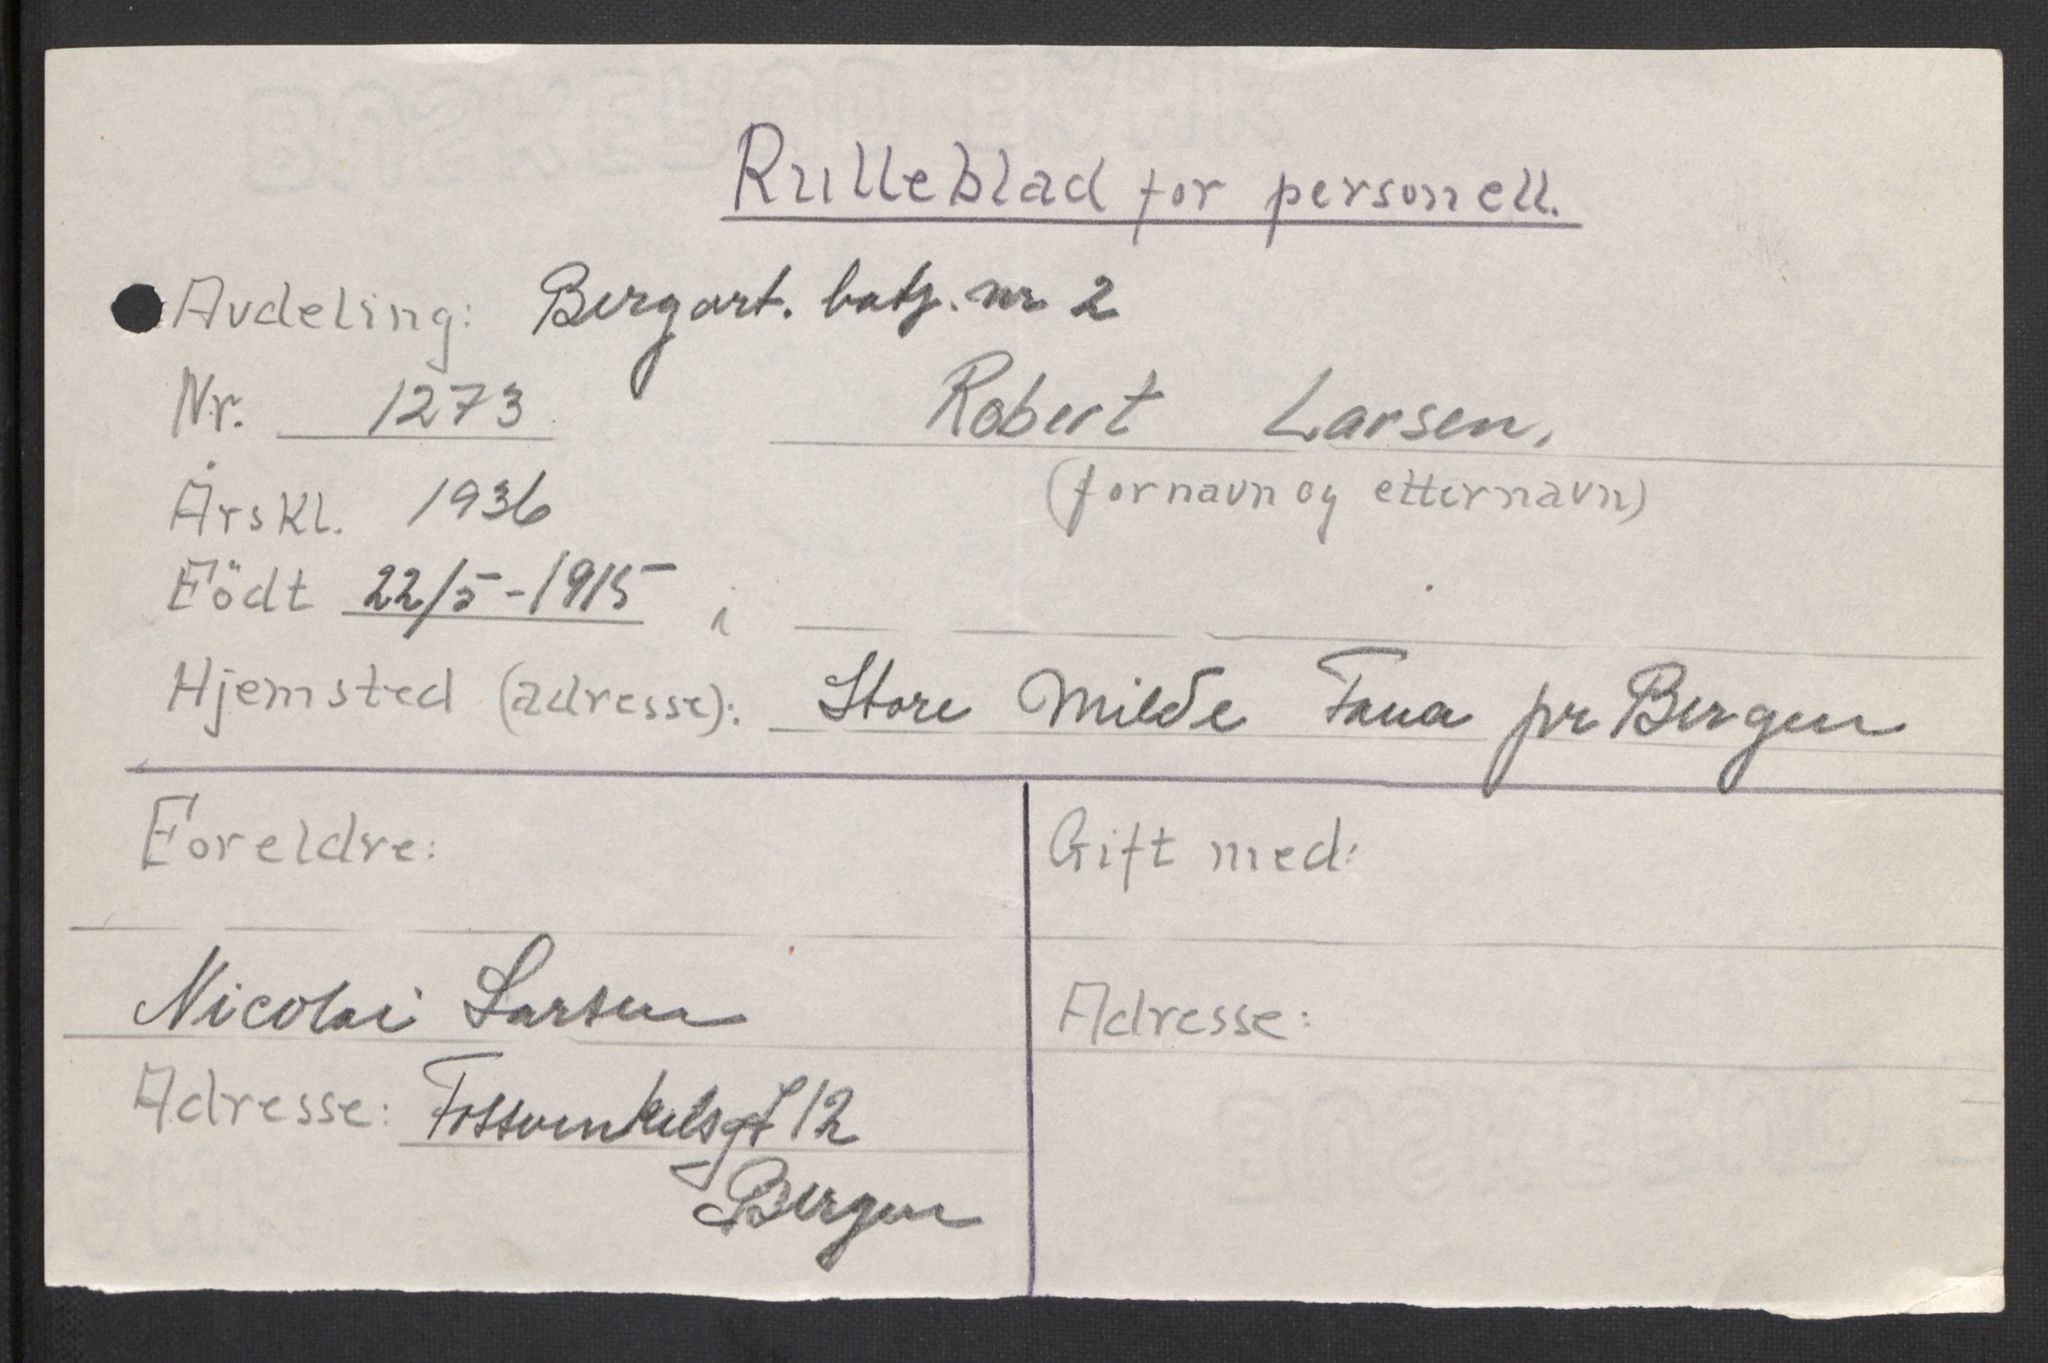 Rulleblad for personell.
Avdeling: Bergart. batj. nr 2
Nr. 1273 Robert Larsen,
(fornavn og etternavn)
Årskl. 1936
Födt 22/5-1915 i
Hjemsted (adresse): Store Milde Fana pr Bergen
Foreldre:
Nicolai Larsen
Adresse: Fossvinkelsgt 12
Bergen
Gift med:
Adresse: